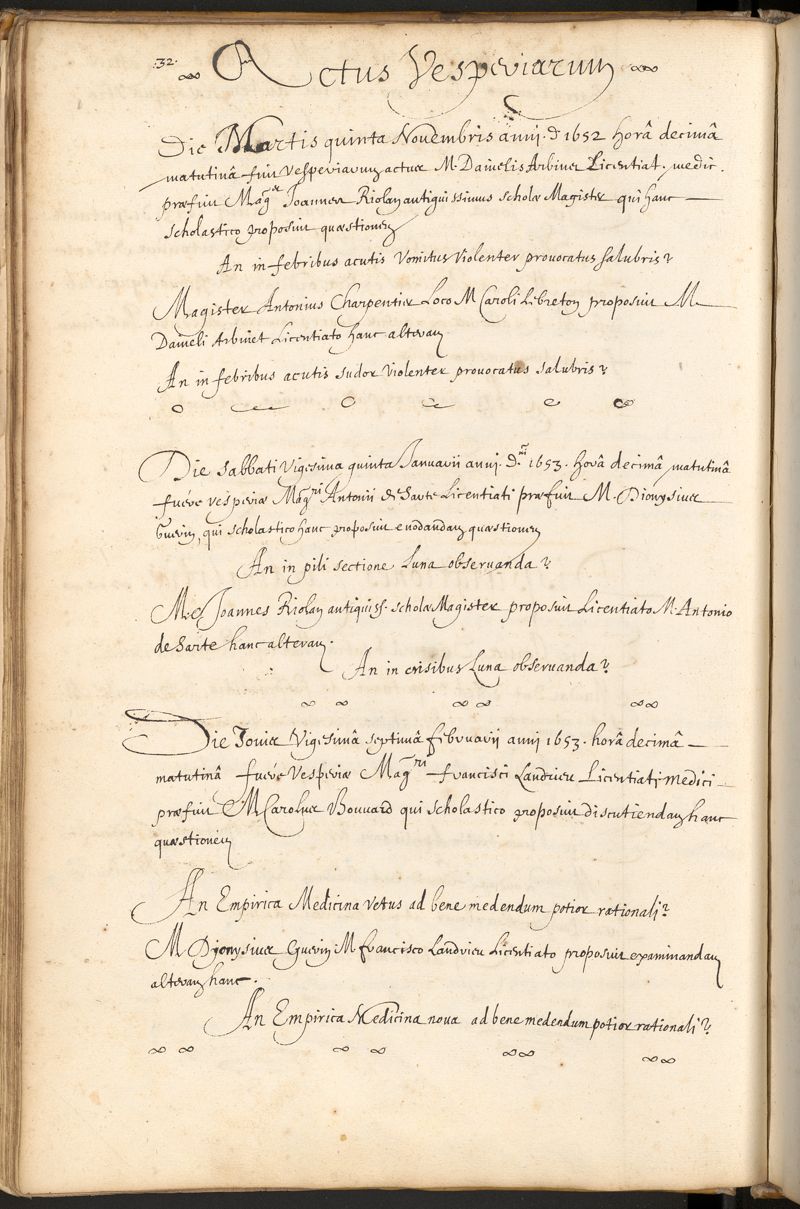 .32.
Actus Vesperiarum
Die Martis quinta Novembris anni. D 1652 horâ decimâ
matutinâ fuit Vesperiarum actus M. Danielis Arbinet Licentiat. medic.
præfuit Mag.er Joannes Riolan antiquissimus scholæ Magister qui hanc
scholastico proposuit quæstionem
An in febribus acutis Vomitus Violenter provocatus salubris?
Magister Antonius Charpentier Loco M Caroli Lebreton proposuit M.
Danieli Arbinet Licentiato hanc alteram
An in febribus acutis sudor Violenter provocatus salubris?
Die sabbati Vigesima quinta Januarii anni. D.ni 1653. horâ decimâ matutinâ
fuére vesperiæ Mag.ri Antonii de Sarte Licentiati præfuit M. Dionysius
Guerin, qui scholastico hanc proposuit enodandam quæstionem
An in pili sectione Luna observanda?
M.e Joannes Riolan antiquiss. scholæ Magister proposuit Licentiato M. Antonio
de Sarte hanc alteram.
An in crisibus Luna observanda?
Die Jovis Vigesimâ septimâ februarii anni 1653. horâ decimâ
matutinâ fuére Vesperiæ Mag.ri francisci Landrieu Licentiati medici
præfuit M Carolus Bouvard qui scholastico proposuit discutiendam hanc
quæstionem
An Empirica Medicina vetus ad bene medendum potior rationali?
M Dionysius Guerin M francisco Landrieu Licentiato proposuit examinandam
alteram hanc.
An Empirica Medicina nova ad bene medendum potior rationali?